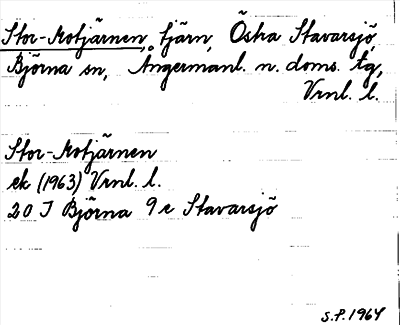 Stor-Kotjärnen, tjärn, Östra Stavarsjö,
Björna sn, Ångermanl. n. doms. tg,
Vrnl. l.
Stor-Kotjärnen
ek (1963) Vrnl. l.
20 I Björna 9e Stavarsjö
S.P. 1964